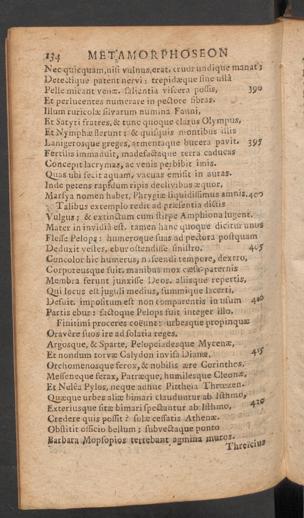 134 METAMORPHOSEON
Nec quicquam, nisi vulnus, erat. cruor undique manat;
Detectique patent nervi: trepidæque sine ullâ
Pelle micant venæ. salientia viscera possis, 390
Et perlucentes numerare in pectore fibras.
Illum ruricolæ silvarum numina Fauni,
Et Satyri fratres, & tunc quoque clarus Olympus,
Et Nymphæ flerunt: & quisquis montibus illis
Lanigerosque greges, armentaque bucera pavit. 395
Fertilis immaduit, madefactaque terra caducas
Concepit lacrymas, ac venis perbibit imis.
Quas ubi fecit aquam, vacuas emisit in auras.
Inde petens rapidum ripis declivibus æquor,
Marsya nomen habet, Phrygiæ liquidissimus amnis. 400
Talibus extemplo redit ad præsentia dictis
Vulgus; & extinctum cum stirpe Amphiona lugent.
Mater in invidiâ est. tamen hanc quoque dicitur unus
Flesse Pelops: humerosque suas ad pectora postquam
Deduxit vestes, ebur ostendisse sinistro. 405
Concolor hic humerus, nascendi tempore, dextro,
Corporeusque fuit. manibus mox cæsa paternis
Membra ferunt junxisse Deos. aliisque repertis,
Qui locus est juguli medius, summique lacerti,
Defuit. impositum est non comparentis in usum 410
Partis ebur: factoque Pelops fuit integer illo.
Finitimi proceres coëunt: urbesque propinquæ
Oravêre suos ire ad solatia reges.
Argosque, & Sparte, Pelopeiadesque Mycenæ,
Et nondum torvæ Calydon invisa Dianæ, 415
Orchomenosque ferox, & nobilis ære Corinthos,
Messeneque ferax, Patræque, humilesque Cleonæ,
Et Nelêa Pylos, neque adhuc Pittheïa Trœzen.
Quæque urbes aliæ bimari clauduntur ab Isthmo,
Exteriusque sitæ bimari spectantur ab Isthmo, 420
Credere quis possit? solæ cessatis Athenæ.
Obstitit officio bellum; subvectaque ponto
Barbara Mopsopios terrebant agmina muros.
Threicius